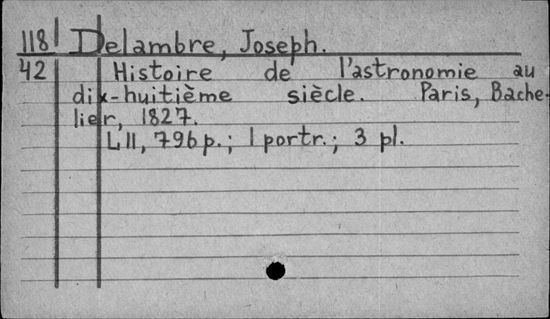 118 Delambre, Joseph.
42 Histoire de l'astronomie au
dix-huitième siècle. Paris, Bache-
lier, 1827.
LII, 796p.; 1 portr.; 3 pl.